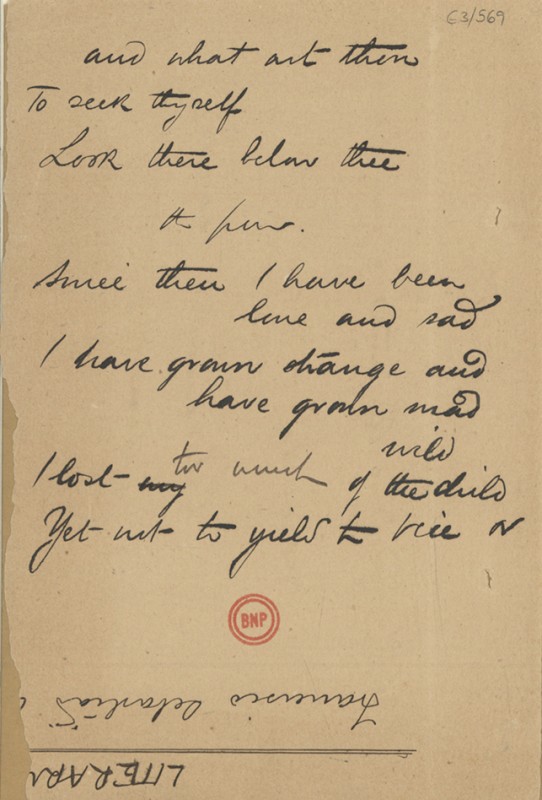 E3/569
and what art thou
To seek thyself
Look there below thee
Since then I have been
lone and sad
I have grown strange and
have grown mad
wild
too much
I lost my of the child
Yet not to yield to vice or
BNP
Francisco Sebastião
LITERAR